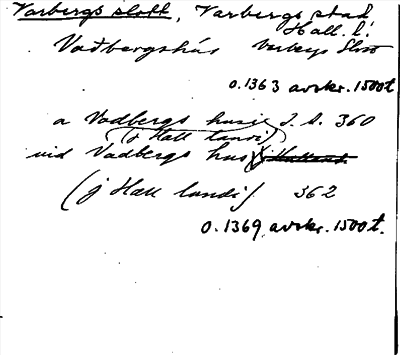 Varbergs slott, Varbergs stad
Hall. l.
Vadbergshus Varbergs Slott
o. 1363 avskr. 1500t
a Vadbergs husi s. s. 360
(j Hall landi)
uid Vadbergs hus
(j Hall landi) 362
o. 1369, avskr. 1500t.